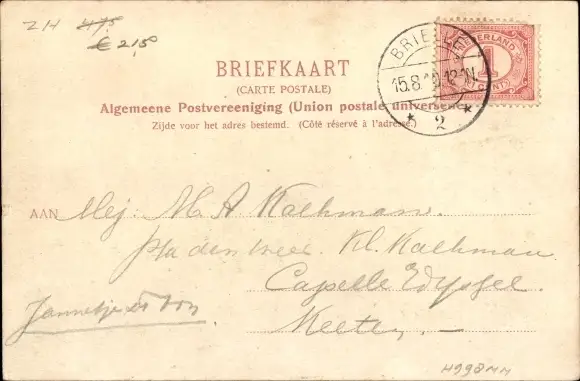 ZH 47,5
€ 21,50
BRIEFKAART
(CARTE POSTALE)
Algemeene Postvereeniging (Union postale universelle)
Zijde voor het adres bestemd. (Côté réservé à l'adresse.)
BRIELLE
15.8. 12-1N
* 2 *
NEDERLAND
1
CENT
AAN Mej: M. A Kolkman.
Kl. Kolkman
Capelle
Keeten.
Jannetje
H998MM